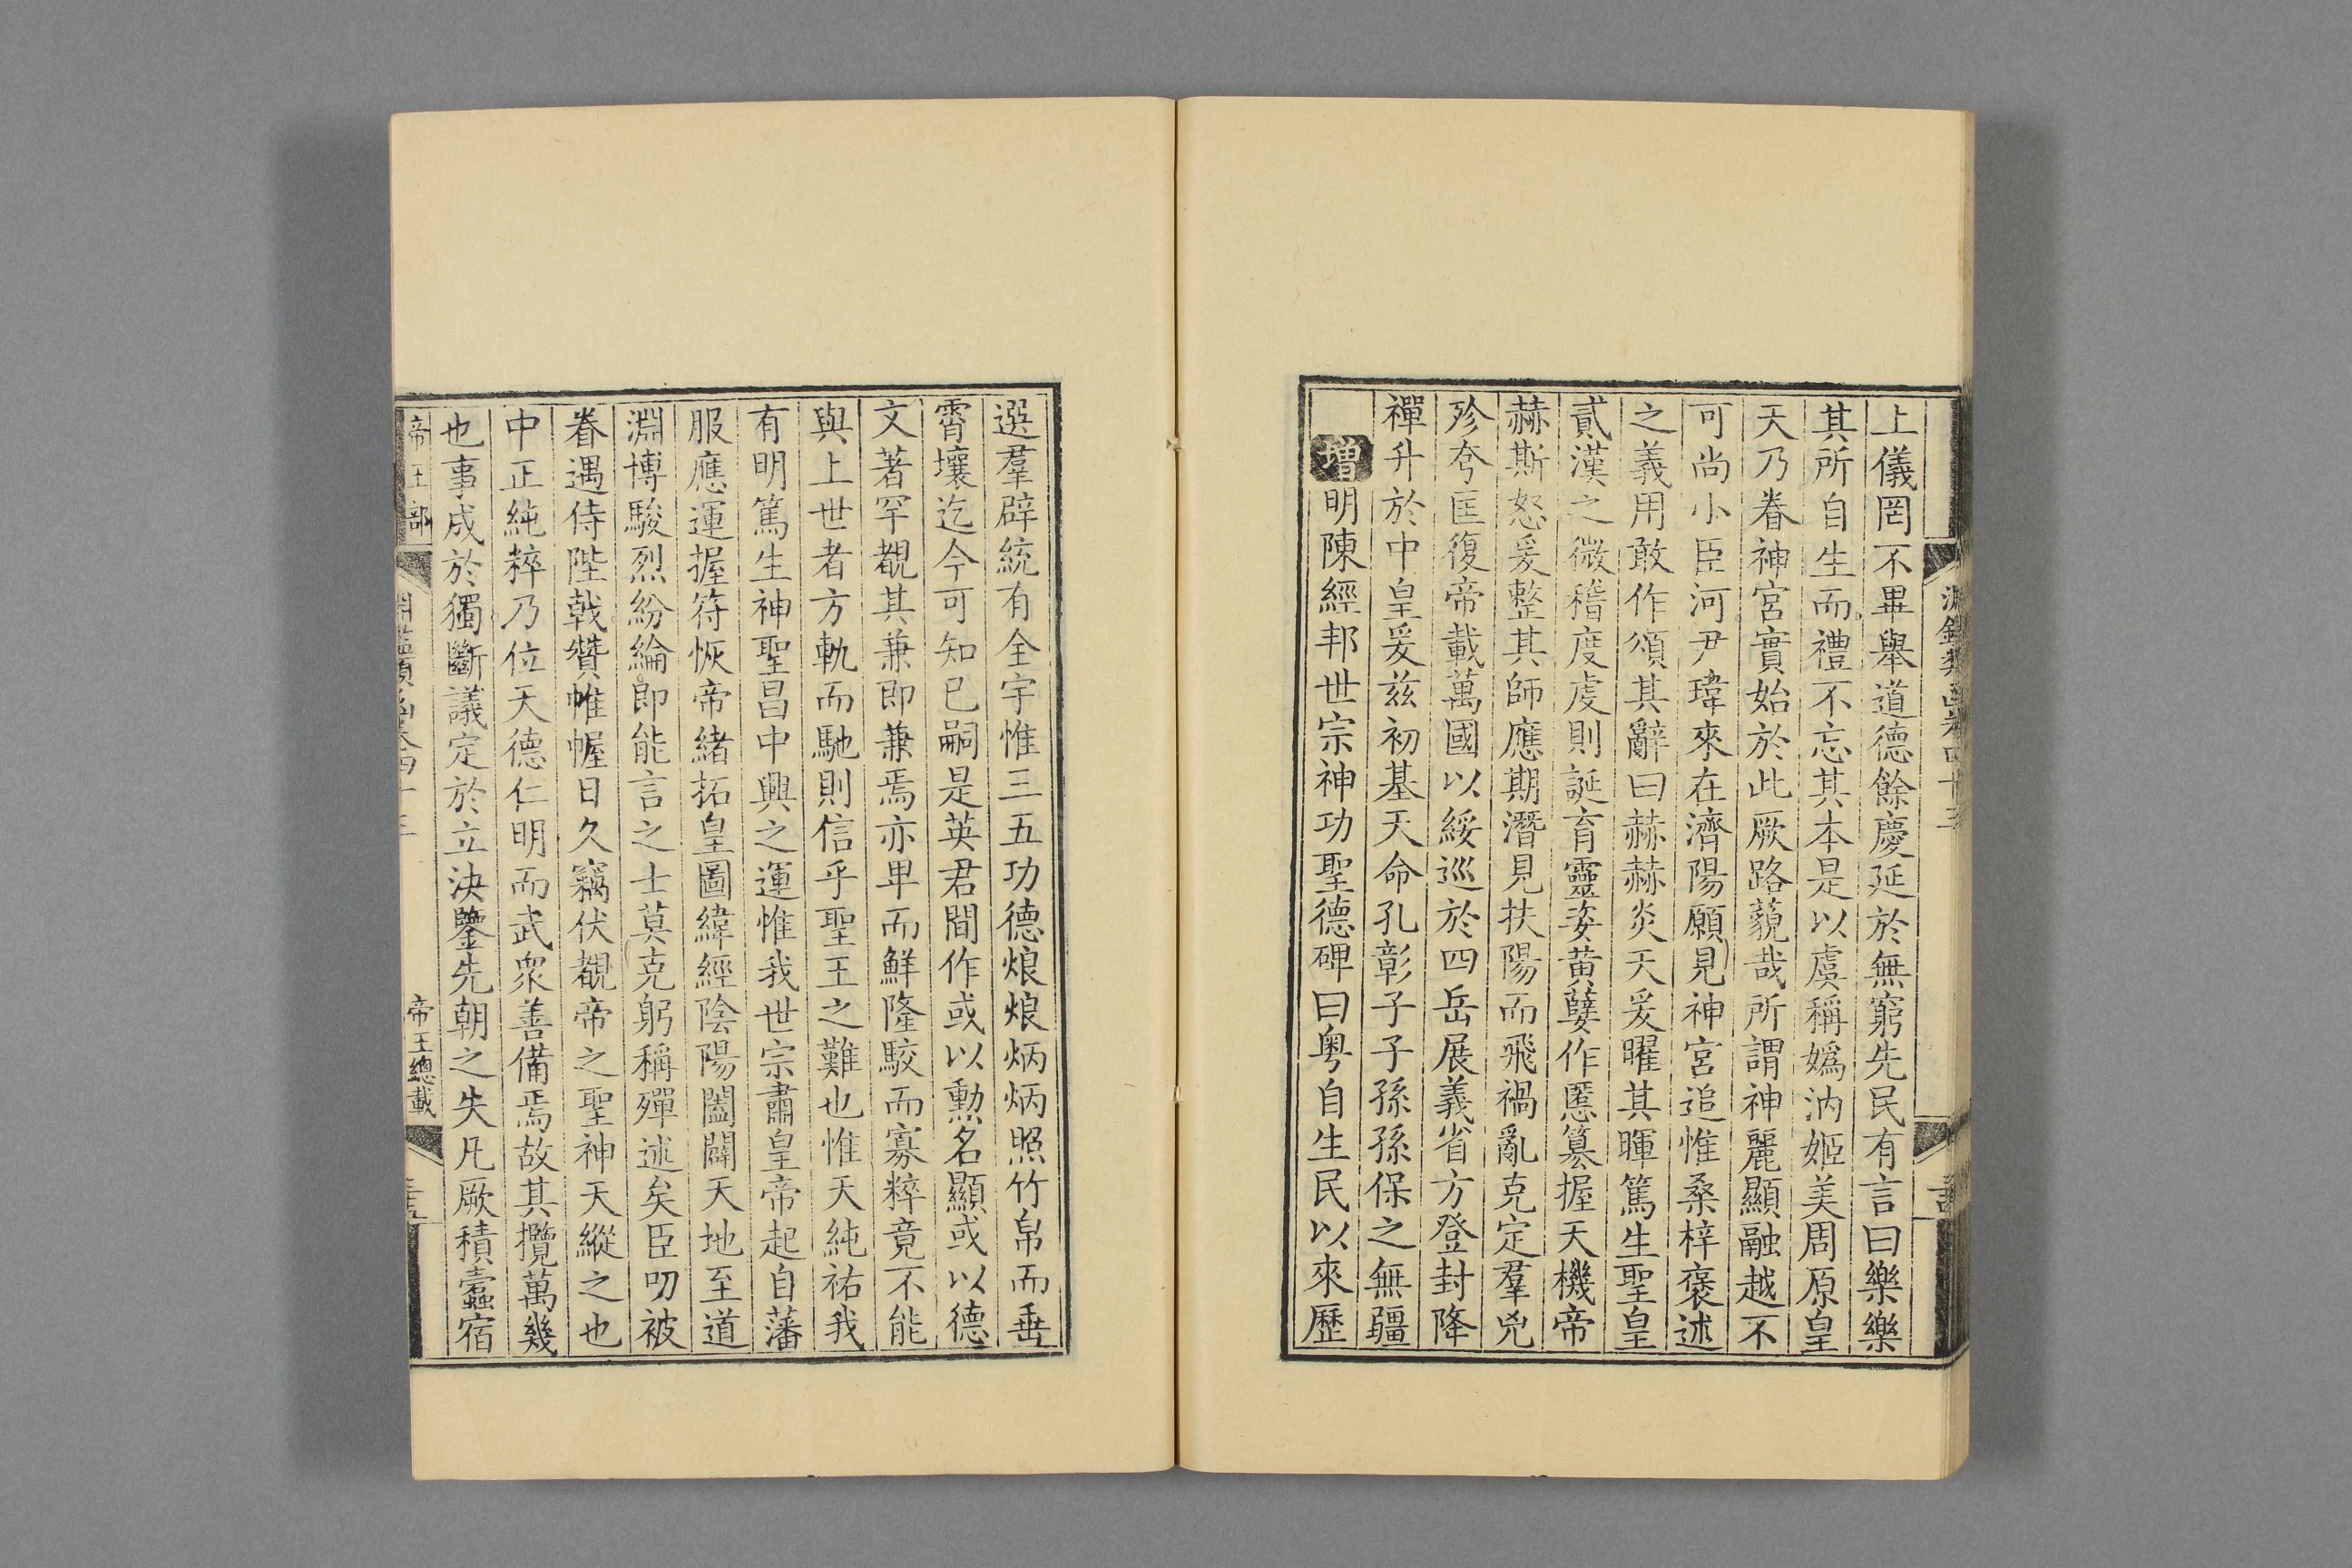 淵鑑類函卷四十三
上儀罔不畢舉道德餘慶延於無窮先民有言曰樂樂
其所自生而禮不忘其本是以虞稱嬀汭姬美周原皇
天乃眷神宮實始於此厥路藐哉所謂神麗顯融越不
可尚小臣河尹瑋來在濟陽願見神宮追惟桑梓褒述
之義用敢作頌其辭曰赫赫炎天爰曜其暉篤生聖皇
貳漢之微稽度虔則誕育靈姿黄孽作慝篡握天機帝
赫斯怒爰整其師應期潛見扶陽而飛禍亂克定羣兇
殄夸匡復帝載萬國以綏巡於四岳展義省方登封降
禪升於中皇爰茲初基天命孔彰子子孫孫保之無疆
增明陳經邦世宗神功聖德碑曰粤自生民以來歷
選羣辟統有全宇惟三五功德烺烺炳炳照竹帛而垂
霄壤迄今可知已嗣是英君間作或以勲名顯或以德
文著罕覩其兼即兼焉亦卑而鮮隆駮而寡粹竟不能
與上世者方軌而馳則信乎聖王之難也惟天純祐我
有明篤生神聖昌中興之運惟我世宗肅皇帝起自藩
服應運握符恢帝緒拓皇圖緯經陰陽闔闢天地至道
淵博駿烈紛綸即能言之士莫克躬稱殫述矣臣叨被
眷遇侍陛戟贊帷幄日久竊伏覩帝之聖神天縱之也
中正純粹乃位天德仁明而武衆善備焉故其攬萬幾
也事成於獨斷議定於立決鑒先朝之失凡厥積蠹宿
帝王部 淵鑑類函卷四十三 帝王總載